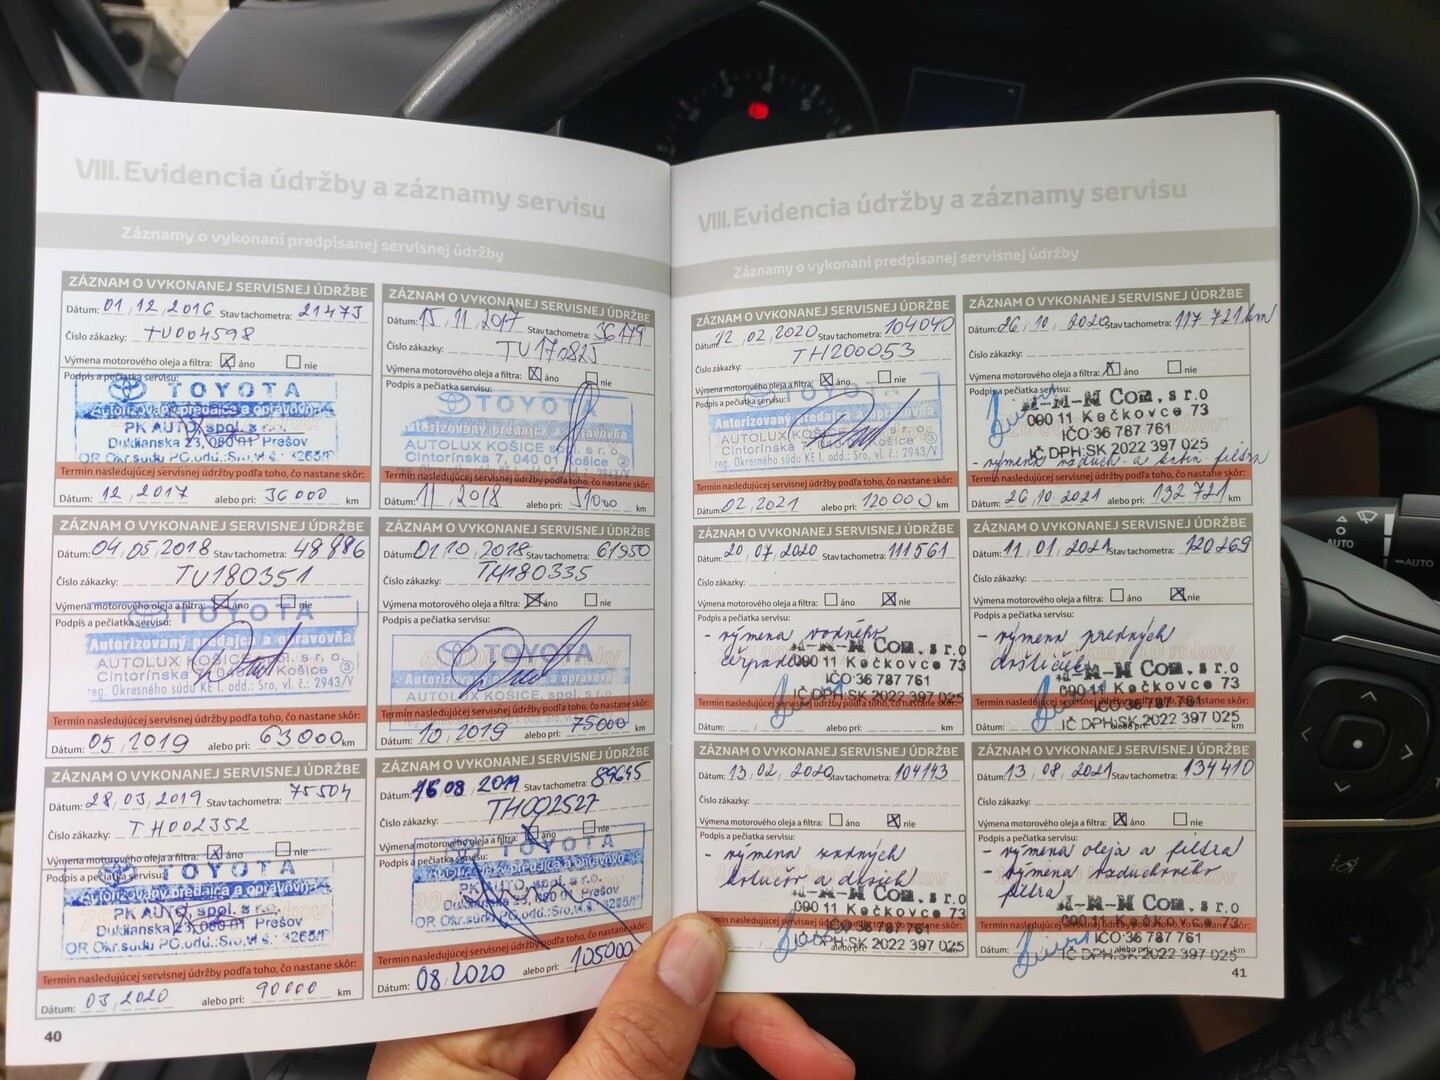 VIII. Evidencia údržby a záznamy servisu
Záznamy o vykonaní predpísanej servisnej údržby
ZÁZNAM O VYKONANEJ SERVISNEJ ÚDRŽBE
Dátum: 01, 12, 2016 Stav tachometra: 21475
Číslo zákazky: TU004598
Výmena motorového oleja a filtra: áno nie
Podpis a pečiatka servisu:
TOYOTA
Autorizovaný predajca a opravovňa
PK AUTO, spol. s r.o.
Duklianska 23, 080 01 Prešov
OR Okr.súdu PO.odd.:Sro,vl.č.: 3265/P
Termín nasledujúcej servisnej údržby podľa toho, čo nastane skôr:
Dátum: 12, 2017 alebo pri: 36000 km
ZÁZNAM O VYKONANEJ SERVISNEJ ÚDRŽBE
Dátum: 15, 11, 2017 Stav tachometra: 36179
Číslo zákazky: TU170825
Výmena motorového oleja a filtra: áno nie
Podpis a pečiatka servisu:
TOYOTA
Autorizovaný predajca a opravovňa
AUTOLUX KOŠICE, spol. s r.o.
Cintorínska 7, 040 01 Košice 2
Termín nasledujúcej servisnej údržby podľa toho, čo nastane skôr:
Dátum: 11, 2018 alebo pri: 51000 km
ZÁZNAM O VYKONANEJ SERVISNEJ ÚDRŽBE
Dátum: 04, 05, 2018 Stav tachometra: 48886
Číslo zákazky: TU180351
Výmena motorového oleja a filtra: áno nie
Podpis a pečiatka servisu:
TOYOTA
Autorizovaný predajca a opravovňa
AUTOLUX KOŠICE, spol. s r.o.
Cintorínska 7, 040 01 Košice 3
reg. Okresného súdu KE I. odd.: Sro, vl. č.: 2943/V
Termín nasledujúcej servisnej údržby podľa toho, čo nastane skôr:
Dátum: 05, 2019 alebo pri: 63000 km
ZÁZNAM O VYKONANEJ SERVISNEJ ÚDRŽBE
Dátum: 01, 10, 2018 Stav tachometra: 61950
Číslo zákazky: TH180335
Výmena motorového oleja a filtra: áno nie
Podpis a pečiatka servisu:
TOYOTA
Autorizovaný predajca a opravovňa
AUTOLUX KOŠICE, spol. s r.o.
Termín nasledujúcej servisnej údržby podľa toho, čo nastane skôr:
Dátum: 10, 2019 alebo pri: 75000 km
ZÁZNAM O VYKONANEJ SERVISNEJ ÚDRŽBE
Dátum: 28, 03, 2019 Stav tachometra: 75504
Číslo zákazky: TH002352
Výmena motorového oleja a filtra: áno nie
Podpis a pečiatka servisu:
TOYOTA
Autorizovaný predajca a opravovňa
PK AUTO, spol. s r.o.
Duklianska 23, 080 01 Prešov
OR Okr.súdu PO.odd.:Sro,vl.č.: 3265/P
Termín nasledujúcej servisnej údržby podľa toho, čo nastane skôr:
Dátum: 03, 2020 alebo pri: 90000 km
ZÁZNAM O VYKONANEJ SERVISNEJ ÚDRŽBE
Dátum: 16 08 2019 Stav tachometra: 89645
Číslo zákazky: TH002527
Výmena motorového oleja a filtra: áno nie
Podpis a pečiatka servisu:
TOYOTA
Autorizovaný predajca a opravovňa
PK AUTO, spol. s r.o.
Duklianska 23, 080 01 Prešov
OR Okr.súdu PO.odd.:Sro,vl.č.: 3265/P
Termín nasledujúcej servisnej údržby podľa toho, čo nastane skôr:
Dátum: 08 2020 alebo pri: 105000
40
VIII. Evidencia údržby a záznamy servisu
Záznamy o vykonaní predpísanej servisnej údržby
ZÁZNAM O VYKONANEJ SERVISNEJ ÚDRŽBE
Dátum: 12, 02, 2020 Stav tachometra: 104040
Číslo zákazky: TH200053
Výmena motorového oleja a filtra: áno nie
Podpis a pečiatka servisu:
TOYOTA
Autorizovaný predajca a opravovňa
AUTOLUX KOŠICE, spol. s r.o.
Cintorínska 7, 040 01 Košice 3
reg. Okresného súdu KE I. odd.: Sro, vl. č.: 2943/V
Termín nasledujúcej servisnej údržby podľa toho, čo nastane skôr:
Dátum: 02, 2021 alebo pri: 120000 km
ZÁZNAM O VYKONANEJ SERVISNEJ ÚDRŽBE
Dátum: 26, 10, 2020 Stav tachometra: 117 721 km
Číslo zákazky:
Výmena motorového oleja a filtra: áno nie
Podpis a pečiatka servisu:
M-M-M Com, s r.o
090 11 Kečkovce 73
IČO 36 787 761
IČ DPH:SK 2022 397 025
- výmena vzduch. a kabín filtra
Termín nasledujúcej servisnej údržby podľa toho, čo nastane skôr:
Dátum: 26, 10, 2021 alebo pri: 132 721 km
ZÁZNAM O VYKONANEJ SERVISNEJ ÚDRŽBE
Dátum: 20, 07, 2020 Stav tachometra: 111561
Číslo zákazky:
Výmena motorového oleja a filtra: áno nie
Podpis a pečiatka servisu:
- výmena vodného
čerpadla
M-M-M Com, s r.o
090 11 Kečkovce 73
IČO 36 787 761
IČ DPH:SK 2022 397 025
Termín nasledujúcej servisnej údržby podľa toho, čo nastane skôr:
Dátum: alebo pri: km
ZÁZNAM O VYKONANEJ SERVISNEJ ÚDRŽBE
Dátum: 11, 01, 2021 Stav tachometra: 120269
Číslo zákazky:
Výmena motorového oleja a filtra: áno nie
Podpis a pečiatka servisu:
- výmena predných
doštičiek
M-M-M Com, s r.o
090 11 Kečkovce 73
IČO 36 787 761
IČ DPH:SK 2022 397 025
Dátum: km
ZÁZNAM O VYKONANEJ SERVISNEJ ÚDRŽBE
Dátum: 13, 02, 2020 Stav tachometra: 104143
Číslo zákazky:
Výmena motorového oleja a filtra: áno nie
Podpis a pečiatka servisu:
- výmena zadných
kotúčov a dosiek
M-M-M Com, s r.o
090 11 Kečkovce 73
IČO 36 787 761
IČ DPH:SK 2022 397 025
ZÁZNAM O VYKONANEJ SERVISNEJ ÚDRŽBE
Dátum: 13, 08, 2021 Stav tachometra: 134410
Číslo zákazky:
Výmena motorového oleja a filtra: áno nie
Podpis a pečiatka servisu:
- výmena oleja a filtra
- výmena vzduchového
filtra
M-M-M Com, s r.o
090 11 Kečkovce 73
IČO 36 787 761
IČ DPH:SK 2022 397 025
Dátum:
41
AUTO
AUTO